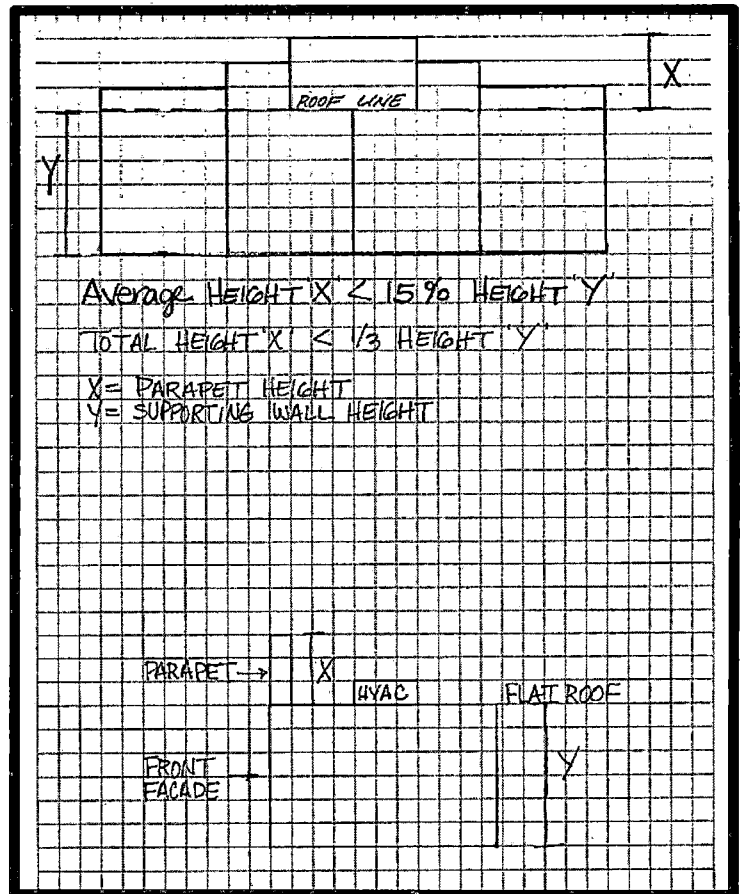 X
ROOF LINE
Y
Average HEIGHT "X" < 15% HEIGHT "Y"
TOTAL HEIGHT "X" < 1/3 HEIGHT "Y"
X = PARAPET HEIGHT
Y = SUPPORTING WALL HEIGHT
PARAPET → X
HVAC FLAT ROOF
FRONT Y
FACADE